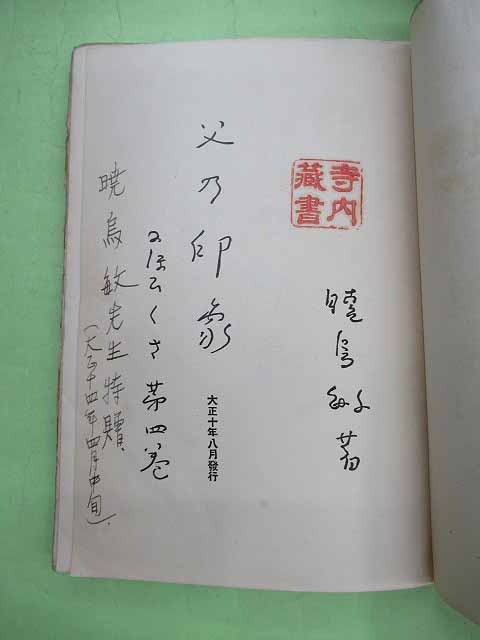 寺内
藏書
曉烏敏著
父乃印象
大正十年八月發行
にほひくさ 第四卷
暁烏敏先生特贈、
(大正十四年四月中旬).